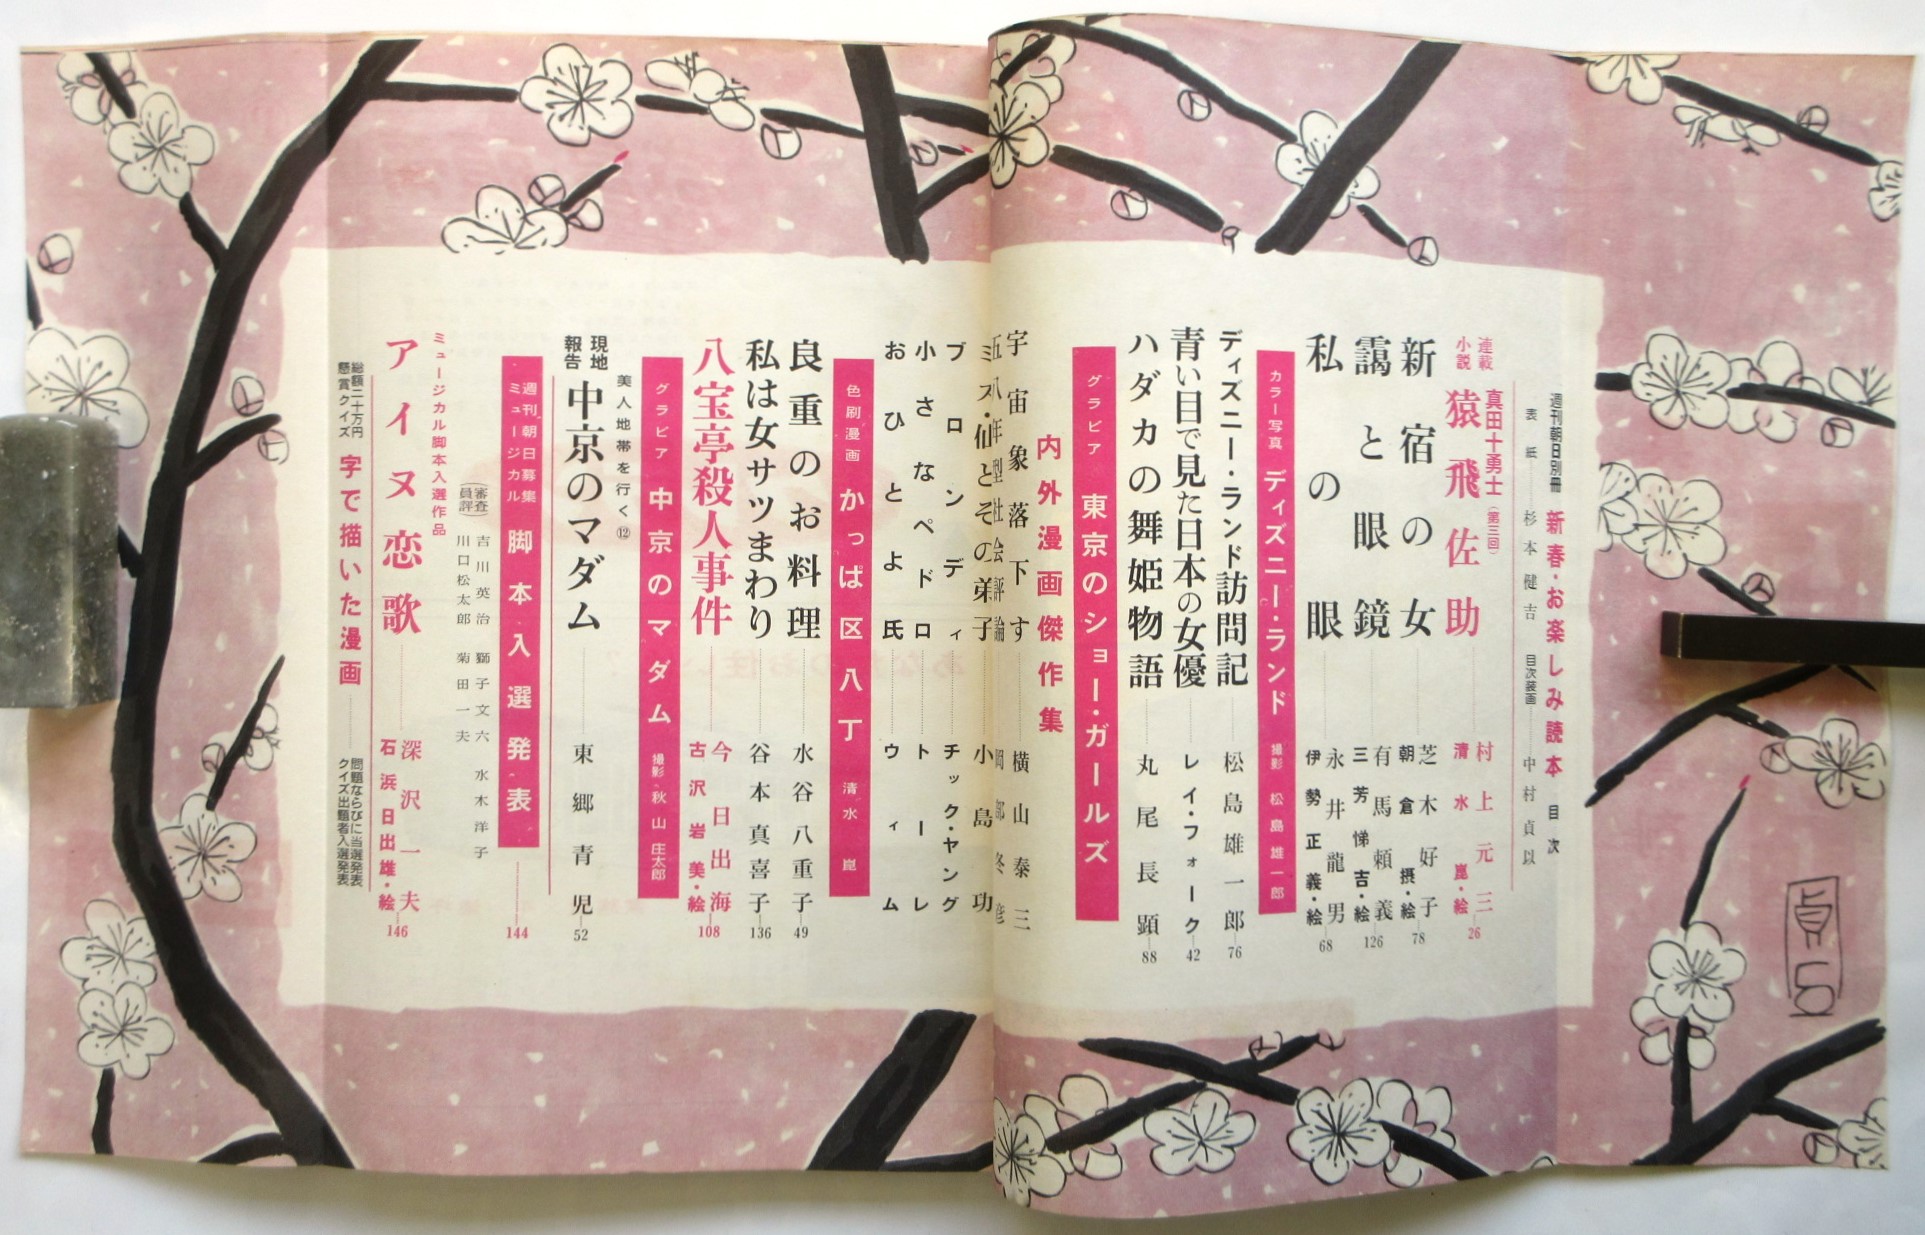 週刊朝日別冊 新春・お楽しみ読本 目次
表紙 杉本健吉 目次装画 中村貞以
連載小説
真田十勇士(第三回)
猿飛佐助 村上元三
清水崑・絵
26
新宿の女 芝木好子
朝倉摂・絵
78
靄と眼鏡 有馬頼義
三芳悌吉・絵
126
私の眼 永井龍男
伊勢正義・絵
68
カラー写真 ディズニー・ランド 撮影 松島雄一郎
ディズニー・ランド訪問記 松島雄一郎 76
青い目で見た日本の女優 レイ・フォーク 42
ハダカの舞姫物語 丸尾長顕 88
グラビア 東京のショー・ガールズ
内外漫画傑作集
宇宙象落下す 横山泰三
五八年型社会評論 岡部冬彦
ミス・仙とその弟子 小島功
ブロンディ チック・ヤング
小さなペドロ トーレ
おひとよ氏 ウィム
色刷漫画 かっぱ区八丁 清水崑
良重のお料理 水谷八重子 49
私は女サツまわり 谷本真喜子 136
八宝亭殺人事件 今日出海
古沢岩美・絵
108
グラビア 中京のマダム 撮影 秋山庄太郎
美人地帯を行く⑫
現地報告 中京のマダム 東郷青児 52
週刊朝日募集ミュージカル 脚本入選発表 144
(審査員評) 吉川英治 獅子文六 水木洋子
川口松太郎 菊田一夫
ミュージカル脚本入選作品
アイヌ恋歌 深沢一夫
石浜日出雄・絵
146
総額二十万円懸賞クイズ 字で描いた漫画 問題ならびに当選発表
クイズ出題者入選発表
貞以